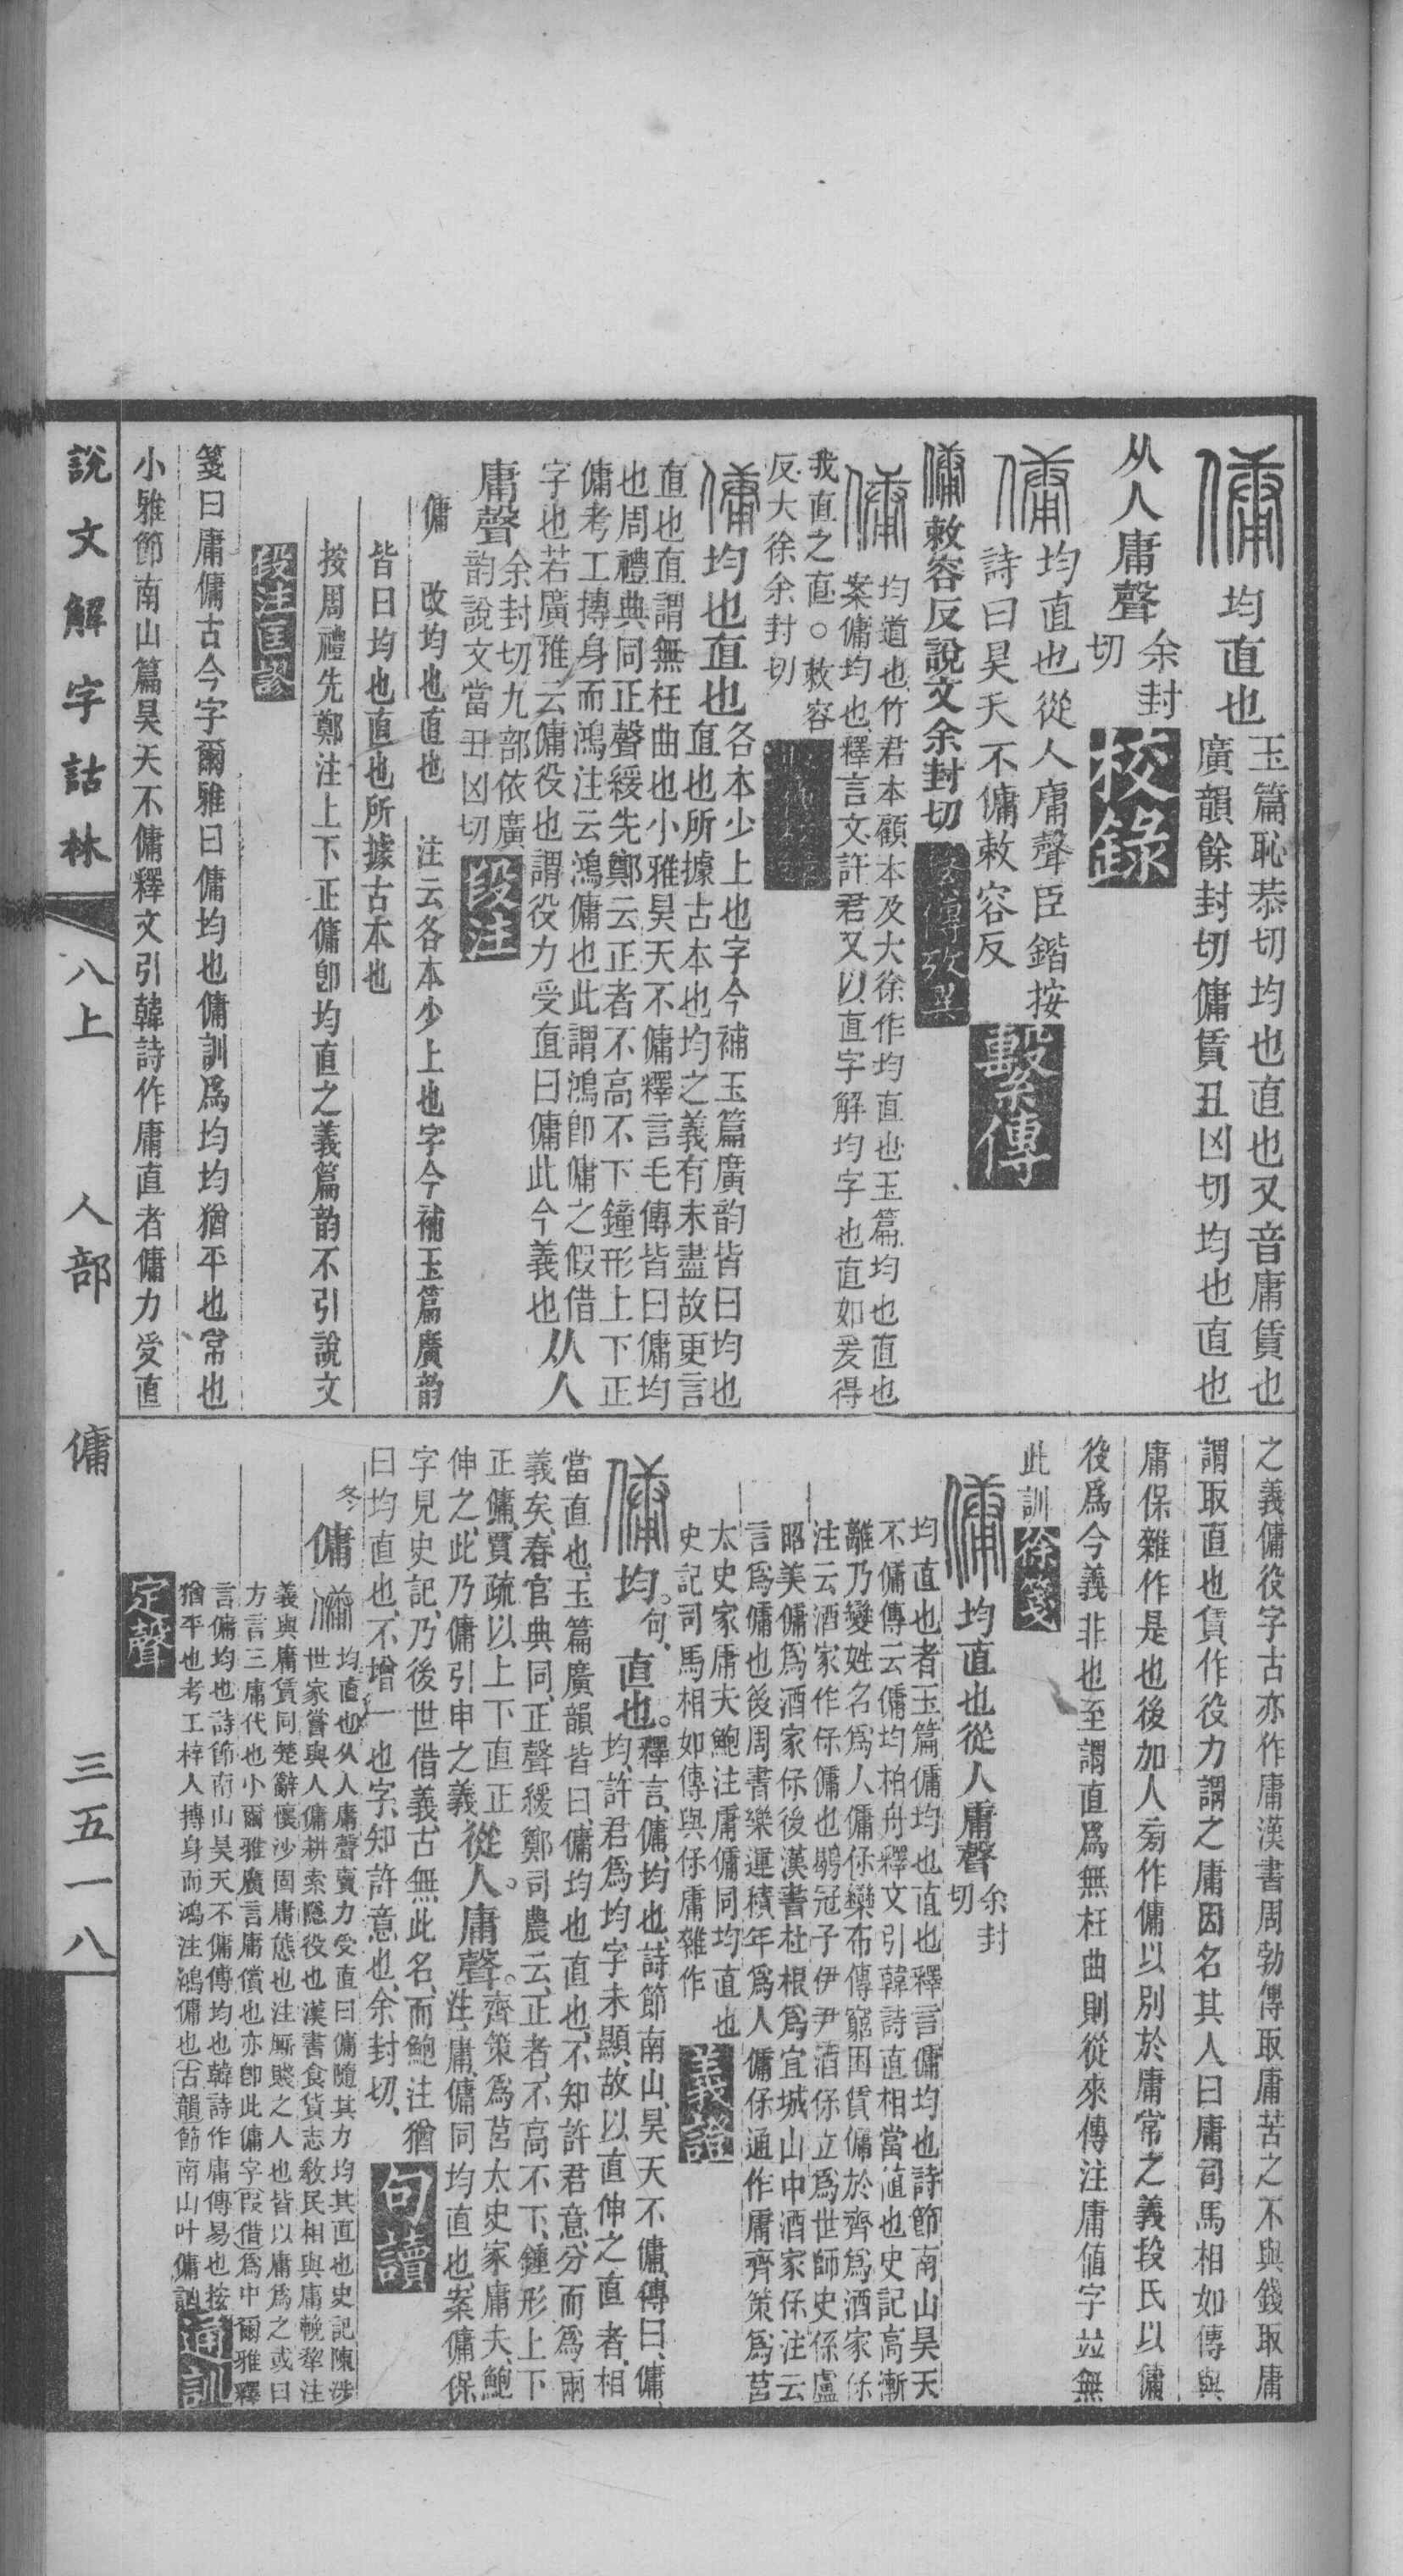 均直也
玉篇恥恭切均也直也又音庸賃也
廣韻餘封切傭賃丑凶切均也直也
从人庸聲
余封
切
校錄
均直也從人庸聲臣鍇按
詩曰昊天不傭敕容反
繫傳
敕容反說文余封切
均道也竹君本顧本及大徐作均直也玉篇均也直也
案傭均也釋言文許君又以直字解均字也直如爰得
我直之直○敕容
反大徐余封切
均也直也
各本少上也字今補玉篇廣韵皆曰均也
直也所據古本也均之義有未盡故更言
直也直謂無枉曲也小雅昊天不傭釋言毛傳皆曰傭均
也周禮典同正聲緩先鄭云正者不高不下鐘形上下正
傭考工摶身而鴻注云鴻傭也此謂鴻卽傭之假借
字也若廣雅云傭役也謂役力受直曰傭此今義也
从人
庸聲
余封切九部依廣
韵說文當丑凶切
段注
傭 改均也直也 注云各本少上也字今補玉篇廣韵
皆曰均也直也所據古本也
按周禮先鄭注上下正傭卽均直之義篇韵不引說文
段注匡謬
箋曰庸傭古今字爾雅曰傭均也傭訓爲均均猶平也常也
小雅節南山篇昊天不傭釋文引韓詩作庸直者傭力受直
之義傭役字古亦作庸漢書周勃傳取庸苦之不與錢取庸
謂取直也賃作役力謂之庸因名其人曰庸司馬相如傳與
庸保雜作是也後加人旁作傭以別於庸常之義段氏以傭
役爲今義非也至謂直爲無枉曲則從來傳注庸値字竝無
此訓
徐箋
均直也從人庸聲
余封
切
均直也者玉篇傭均也直也釋言傭均也詩節南山昊天
不傭傳云傭均柏舟釋文引韓詩直相當値也史記高漸
離乃變姓名爲人傭保欒布傳窮困賃傭於齊爲酒家保
注云酒家作保傭也鶡冠子伊尹酒保立爲世師史係盧
昭美傭爲酒家保後漢書杜根爲宜城山中酒家保注云
言爲傭也後周書樂運積年爲人傭保通作庸齊策爲莒
太史家庸夫鮑注庸傭同均直也
史記司馬相如傳與保庸雜作
義證
均。句、直也。
釋言、傭、均也、詩節南山、昊天不傭、傳曰、傭、
均、許君爲均字未顯、故以直伸之直者、相
當直也、玉篇廣韻皆曰、傭均也直也、不知許君意、分而爲兩
義矣、春官典同、正聲緩鄭司農云、正者、不高不下、鍾形上下
正傭、賈疏以上下直正
伸之、此乃傭引申之義、
從人。庸聲。
齊策爲莒太史家庸夫、鮑
注、庸、傭同、均直也、案傭保
字見史記、乃後世借義、古無此名、而鮑注猶
曰均直也、不增一也字、知許意也、余封切、
句讀
冬
傭
均直也从人庸聲賣力受直曰傭隨其力均其直也史記陳涉
世家嘗與人傭耕索隱役也漢書食貨志敎民相與庸輓犂注
義與庸賃同楚辭懷沙固庸態也注廝賤之人也皆以庸爲之或曰
方言三庸代也小爾雅廣言庸償也亦卽此傭字假借爲中爾雅釋
言傭均也詩節南山昊天不傭傳均也韓詩作庸傳易也按
猶平也考工梓人摶身而鴻注鴻傭也古韻節南山叶傭訩
通訓
定聲
說文解字詁林 八上 人部 傭 三五一八